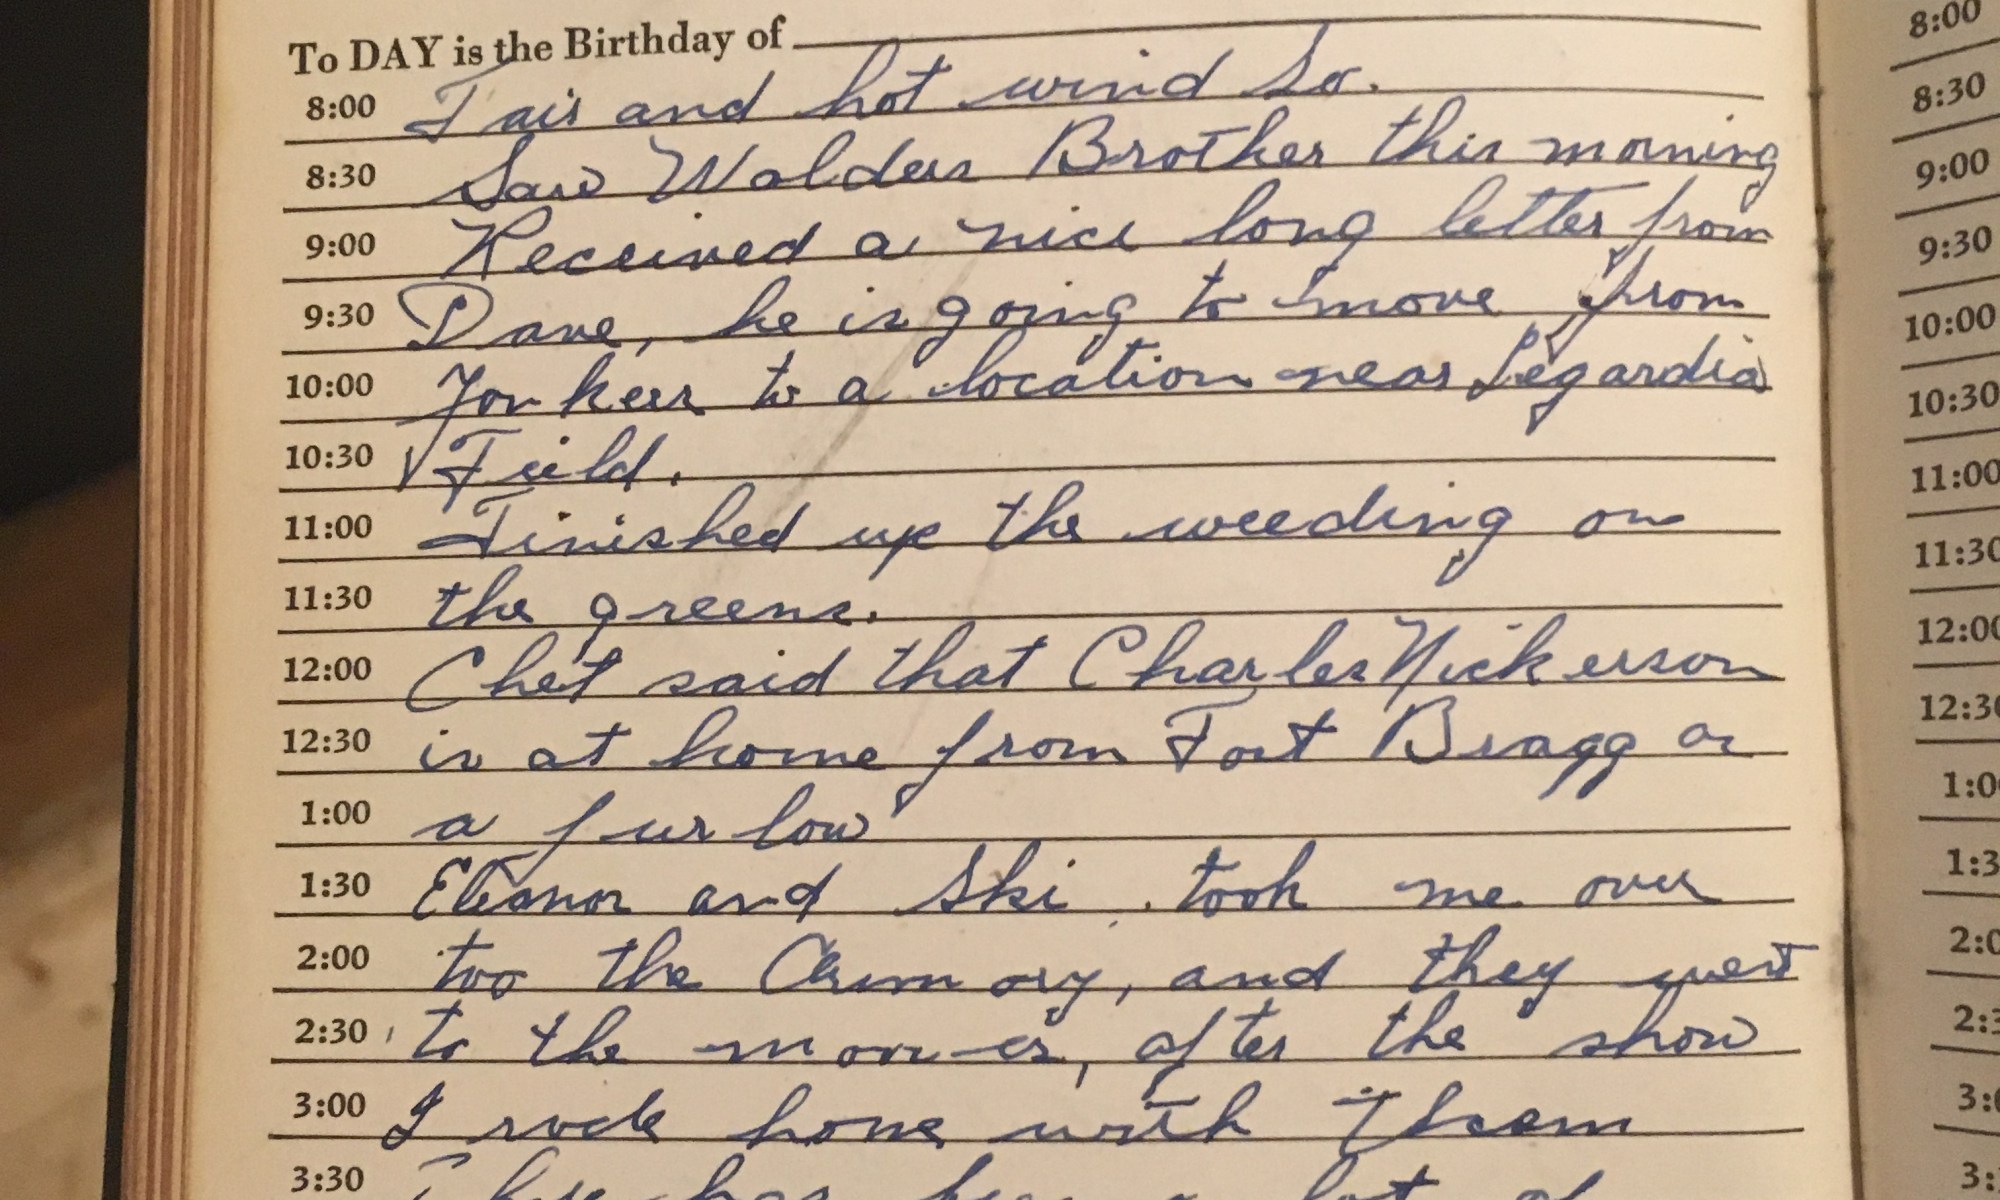 To DAY is the Birthday of
8:00 Fair and hot wind So.
8:30 Saw Walders Brother this morning
9:00 Received a nice long letter from
9:30 Dave, he is going to move from
10:00 Yonkers to a location near Legardia
10:30 Field.
11:00 Finished up the weeding on
11:30 the greens.
12:00 Chet said that Charles Nickerson
12:30 is at home from Fort Bragg on
1:00 a furlow
1:30 Eleanor and Ski took me over
2:00 too the Armory, and they went
2:30 to the movies, after the show
3:00 I rode home with them
3:30 a lot of
8:00
8:30
9:00
9:30
10:00
10:30
11:00
11:30
12:00
12:30
1:00
1:3
2:0
2:3
3:0
3: